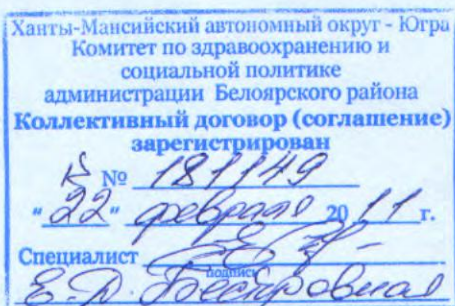 Ханты-Мансийский автономный округ - Югра
Комитет по здравоохранению и
социальной политике
администрации Белоярского района
Коллективный договор (соглашение)
зарегистрирован
№ 181149
"22" февраля 2011 г.
Специалист
подпись
Е.Д.